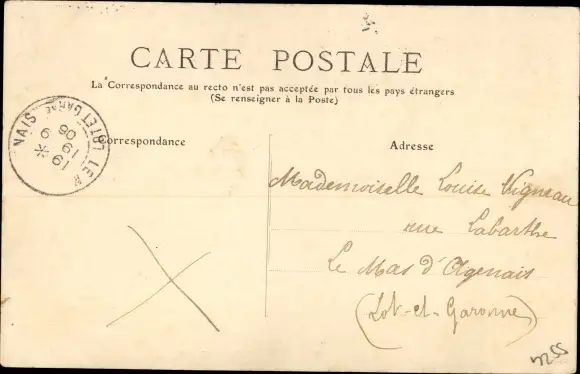 CARTE POSTALE
La Correspondance au recto n'est pas acceptée par tous les pays étrangers
(Se renseigner à la Poste)
Correspondance
Adresse
Mademoiselle Louise Vigneau
rue Labarthe
Le Mas d'Agenais
(Lot-et-Garonne)
LOT ET GARNE
19
9
06